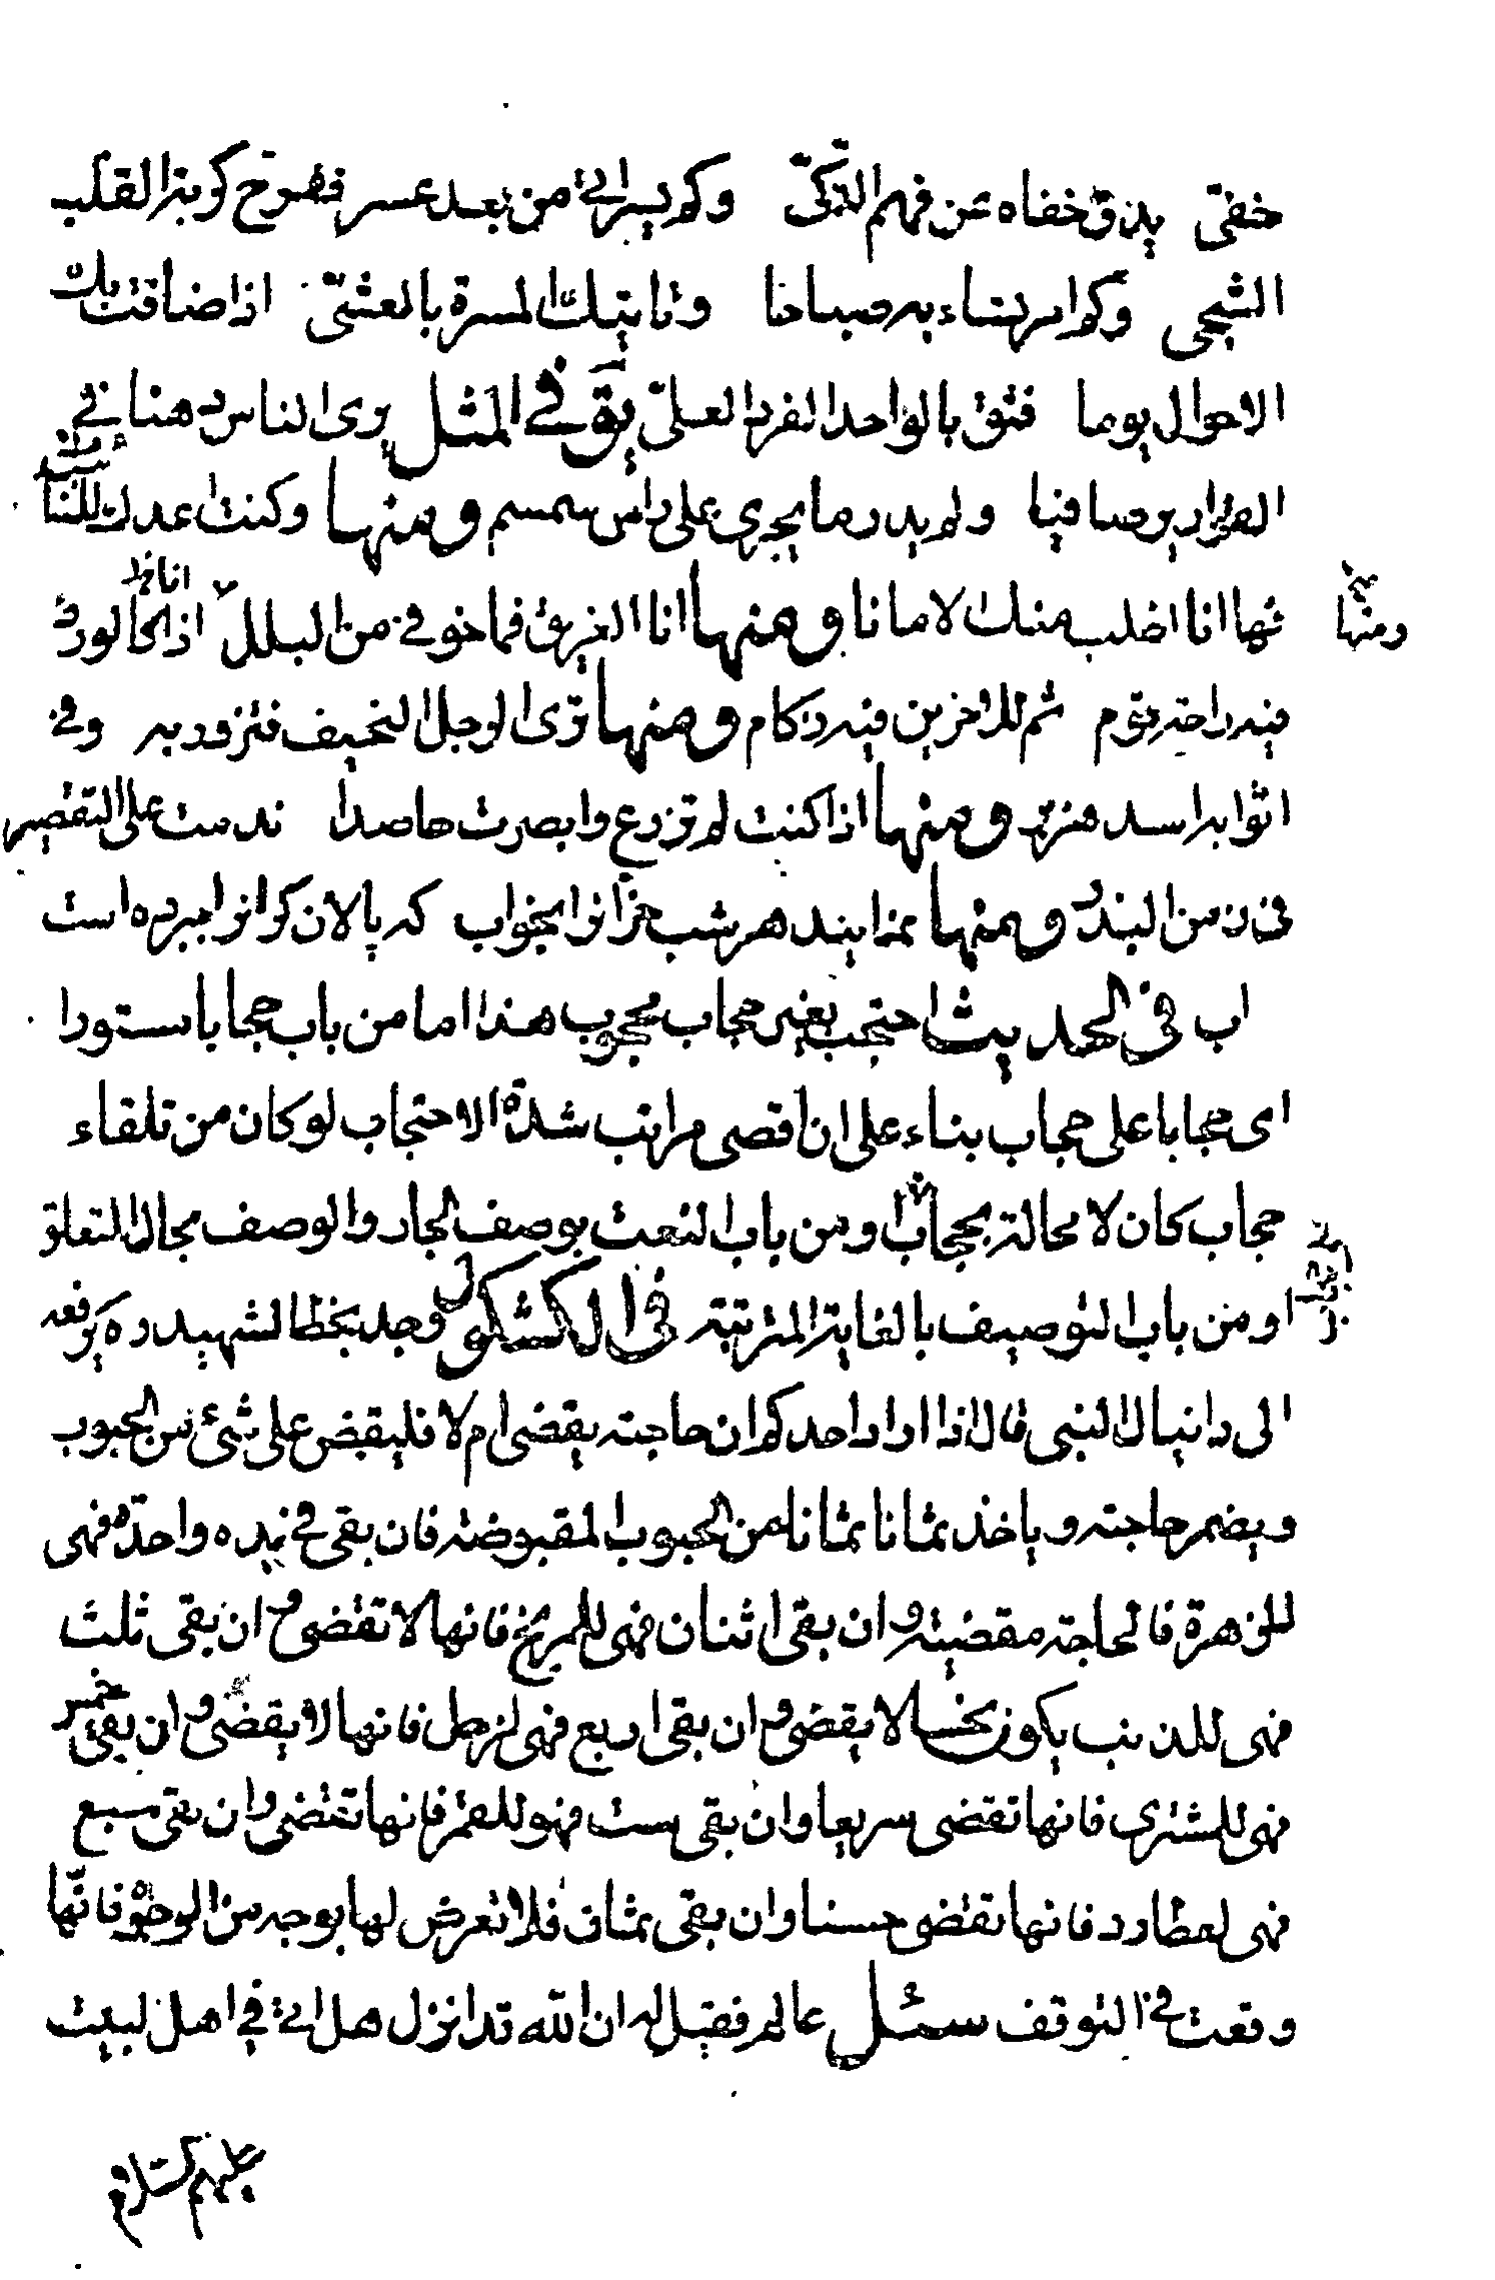 خفیّ یدقّ خفاه عن فهم الذکیّ وکم یسر اتی من بعد عسر ففرّح کربة القلب
الشجی وکم امر تساء به صباحا وتاتیک المسرة بالعشیّ اذا ضاقت بک
الاحوال یوما فثق بالواحد الفرد العلیّ یق فی المثل یری الناس دهنا فی
القواریر صافیا ولم یدر ما یجری علی راس سمسم ومنها وکنت عدک للنا
ئبات
ومنها
ثها انا اطلب منک الامانا ومنها انا الغریق فما خوفی من البلل اذا الحا لورد
انا
فیه راحة قوم ثم للاخرین فیه زکام ومنها تری الرجل النحیف فتزدریه وفی
اثوابه اسد هزبر ومنها اذا کنت لم تزرع وابصرت حاصدا ندمت علی التقصیر
فی زمن البذر ومنها نمایند هر شب خرانرا بخواب که پالان کرانرا ببرده است
اب فی الحدیث احتجب بغیر حجاب محجوب هذا اما من باب حجابا مستورا
ای حجابا علی حجاب بناء علی ان اقصی مراتب شدة الاحتجاب لو کان من تلقاء
حجاب کان لا محالة بحجاب او من باب النعت بوصف الجار والوصف بحال المتعلق
او من باب التوصیف بالغایة المترتبة فی الکشکول وجد بخط الشهید ره یرفعه
الی دانیال النبی قال اذا اراد احدکم ان حاجته یقضی ام لا فلیقبض علی شئ من الحبوب
ویضمر حاجته ویاخذ ثمانا ثمانا من الحبوب المقبوضة فان بقی فی یده واحدة فهی
للزهرة فالحاجة مقضیة وان بقی اثنان فهی للمریخ فانها لا تقضی وان بقی ثلث
فهی للذنب یکون نحسا لا یقضی وان بقی اربع فهی لزحل فانها لا یقضی وان بقی خمس
فهی للمشتری فانها تقضی سریعا وان بقی ست فهو للقمر فانها تقضی وان بقی سبع
فهی لعطارد فانها تقضی حسنا وان بقی ثمان فلا تعرض لها بوجه من الوجوه فانّها
وقعت فی التوقف سئل عالم فقیل له ان الله قد انزل هل اتی فی اهل البیت
علیهم السلام